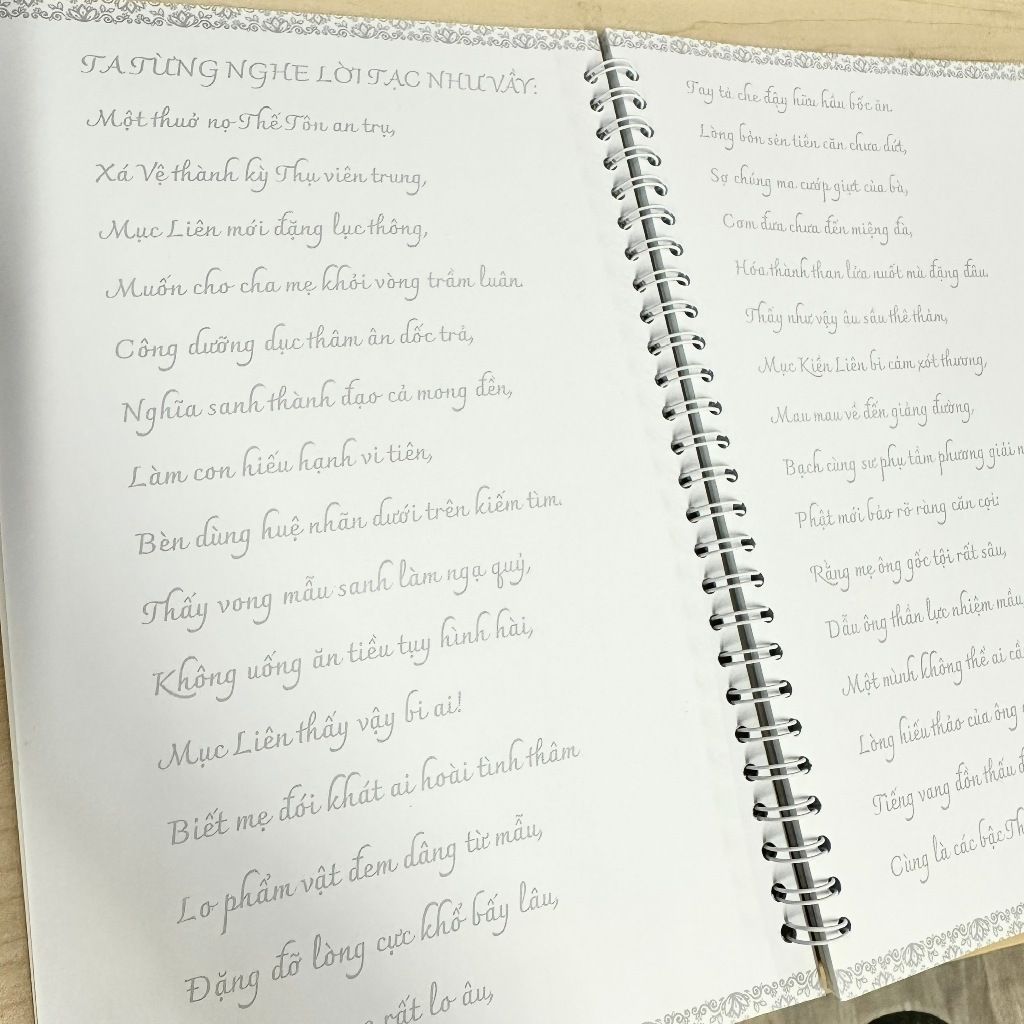 TA TỪNG NGHE LỜI TẠC NHƯ VẦY:
Một thuở nọ Thế Tôn an trụ,
Xá Vệ thành kỳ Thụ viên trung,
Mục Liên mới đặng lục thông,
Muốn cho cha mẹ khỏi vòng trầm luân.
Công dưỡng dục thâm ân dốc trả,
Nghĩa sanh thành đạo cả mong đền,
Làm con hiếu hạnh vi tiên,
Bèn dùng huệ nhãn dưới trên kiếm tìm.
Thấy vong mẫu sanh làm ngạ quỷ,
Không uống ăn tiều tụy hình hài,
Mục Liên thấy vậy bi ai!
Biết mẹ đói khát ai hoài tình thâm
Lo phẩm vật đem dâng từ mẫu,
Đặng đỡ lòng cực khổ bấy lâu,
rất lo âu,
Tay tả che đậy hữu hầu bốc ăn.
Lòng bỏn sẻn tiền căn chưa dứt,
Sợ chúng ma cướp giựt của bà,
Cơm đưa chưa đến miệng đà,
Hóa thành than lửa nuốt mà đặng đâu.
Thấy như vậy âu sầu thê thảm,
Mục Kiền Liên bi cảm xót thương,
Mau mau về đến giảng đường,
Bạch cùng sư phụ tầm phương giải
Phật mới bảo rõ ràng căn cội:
Rằng mẹ ông gốc tội rất sâu,
Dẫu ông thần lực nhiệm mầu
Một mình không thể ai
Lòng hiếu thảo của ông
Tiếng vang đồn thấu
Cùng là các bậc